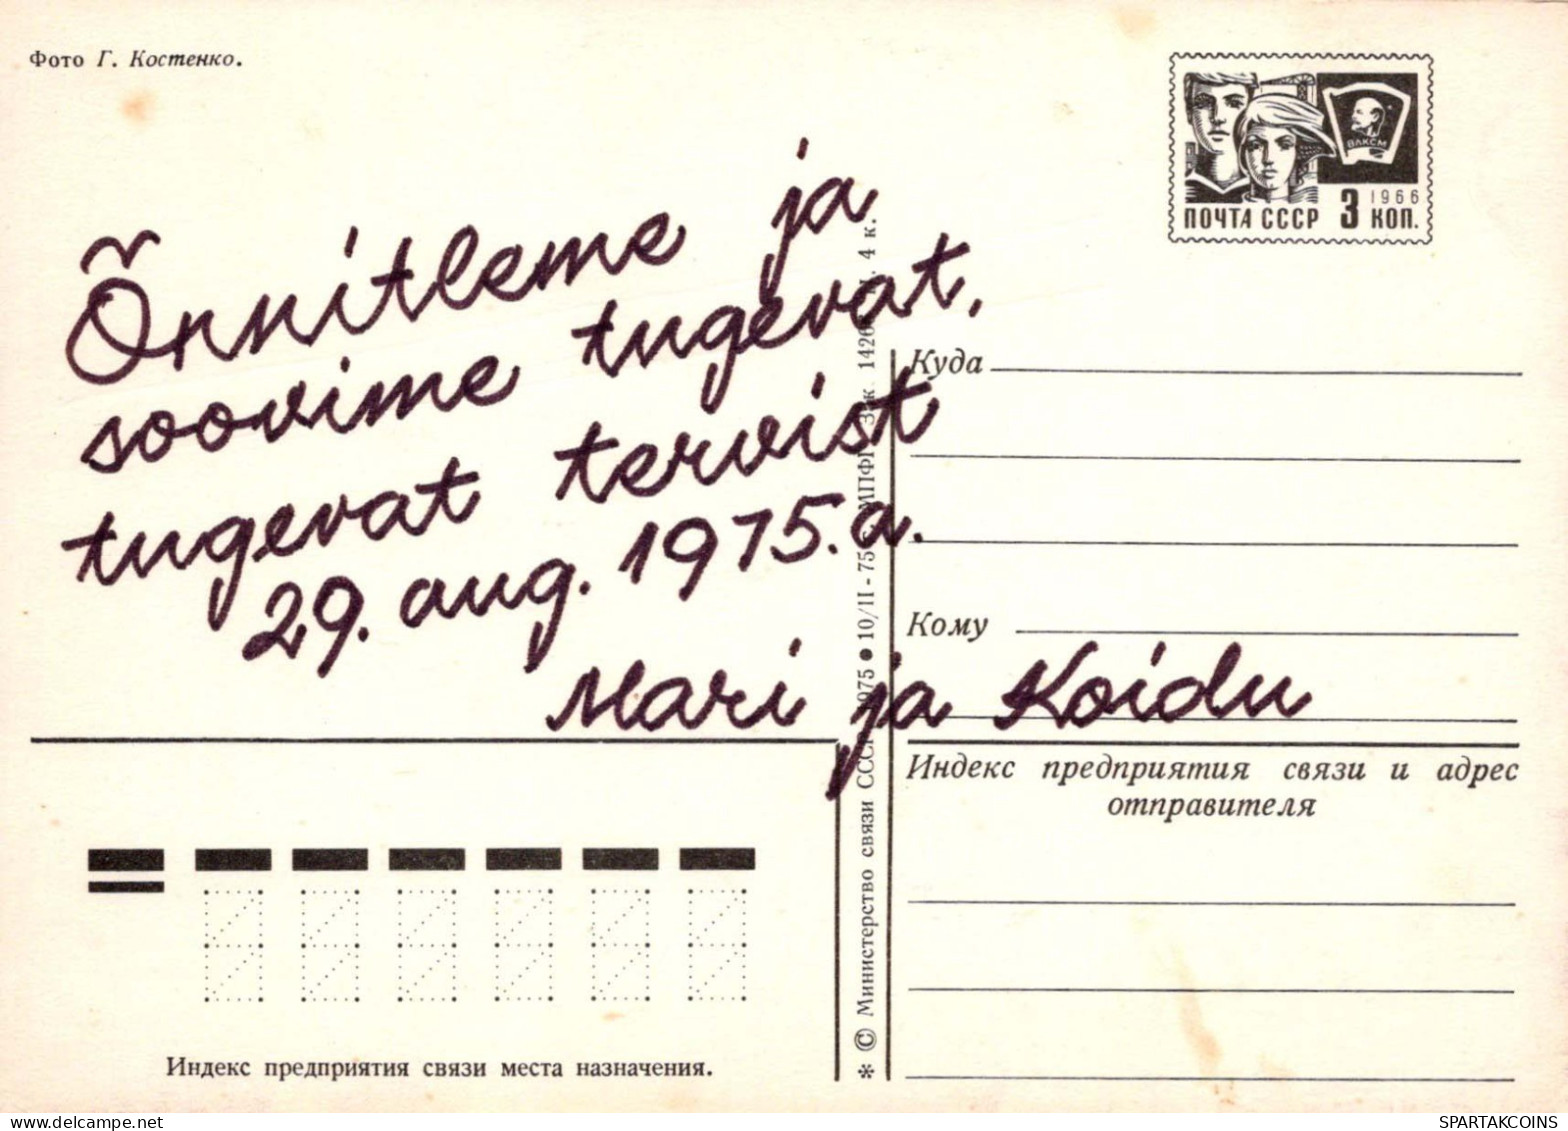 Фото Г. Костенко.
ВЛКСМ
1966
ПОЧТА СССР 3 КОП.
Õnnitleme ja
soovime tugevat,
tugevat tervist
29. aug. 1975. a.
Mari ja Koidu
Куда
Кому
Индекс предприятия связи и адрес
отправителя
Индекс предприятия связи места назначения.
* © Министерство связи СССР 1975 • 10/II - 75 МПФГ 4 к.
delcampe.net
SPARTAKCOINS
SPARTAKCOINS